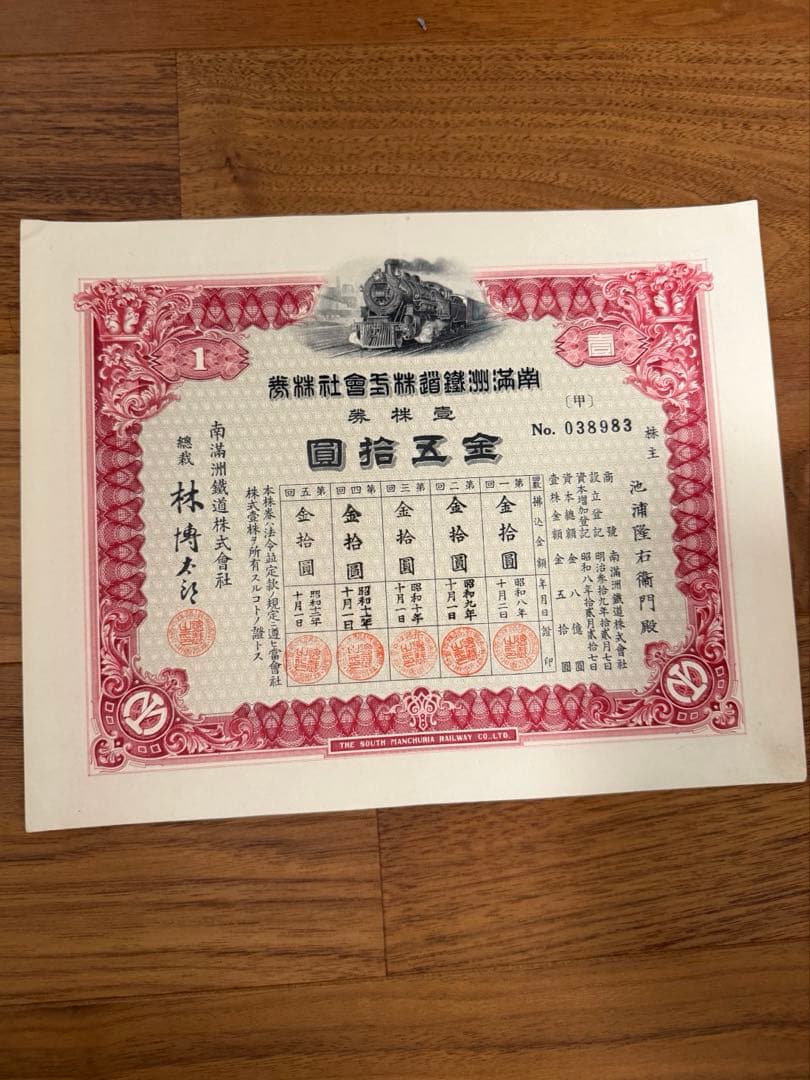 壹
1
南滿洲鐵道株式會社株券
〔甲〕
壹株券
No. 038983
金五拾圓
株主 池浦隆右衞門殿
商號 南滿洲鐵道株式會社
設立登記 明治參拾九年拾貳月七日
資本增加登記 昭和八年拾貳月貳拾七日
資本總額 金八億圓
壹株金額 金五拾圓
回數 拂込金額 年月日 證印
第一回 金拾圓 昭和八年十月二日
第二回 金拾圓 昭和九年十月一日
第三回 金拾圓 昭和十年十月一日
第四回 金拾圓 昭和十一年十月一日
第五回 金拾圓 昭和十二年十月一日
本株券ハ法令竝定款ノ規定ニ遵ヒ當會社
株式壹株ヲ所有スルコトノ證トス
南滿洲鐵道株式會社
總裁 林博太郎
THE SOUTH MANCHURIA RAILWAY CO., LTD.